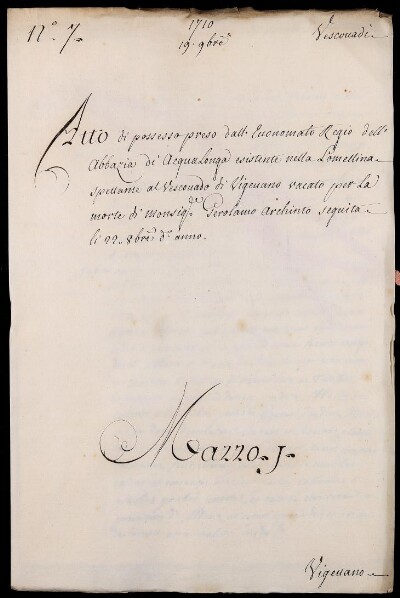 N.º 7.
1710
19. 9bre
Vescouadi
Atto di possesso preso dall' Euonomato Regio dell'
Abbazia di AcquaLonga esistente nella Lomellina
spettante al Vescouado di Vigeuano vacato per la
morte di Monsig.r de Gerolamo Archinto seguita
li 22. 8bre d.º anno.
Mazzo J.
Vigeuano